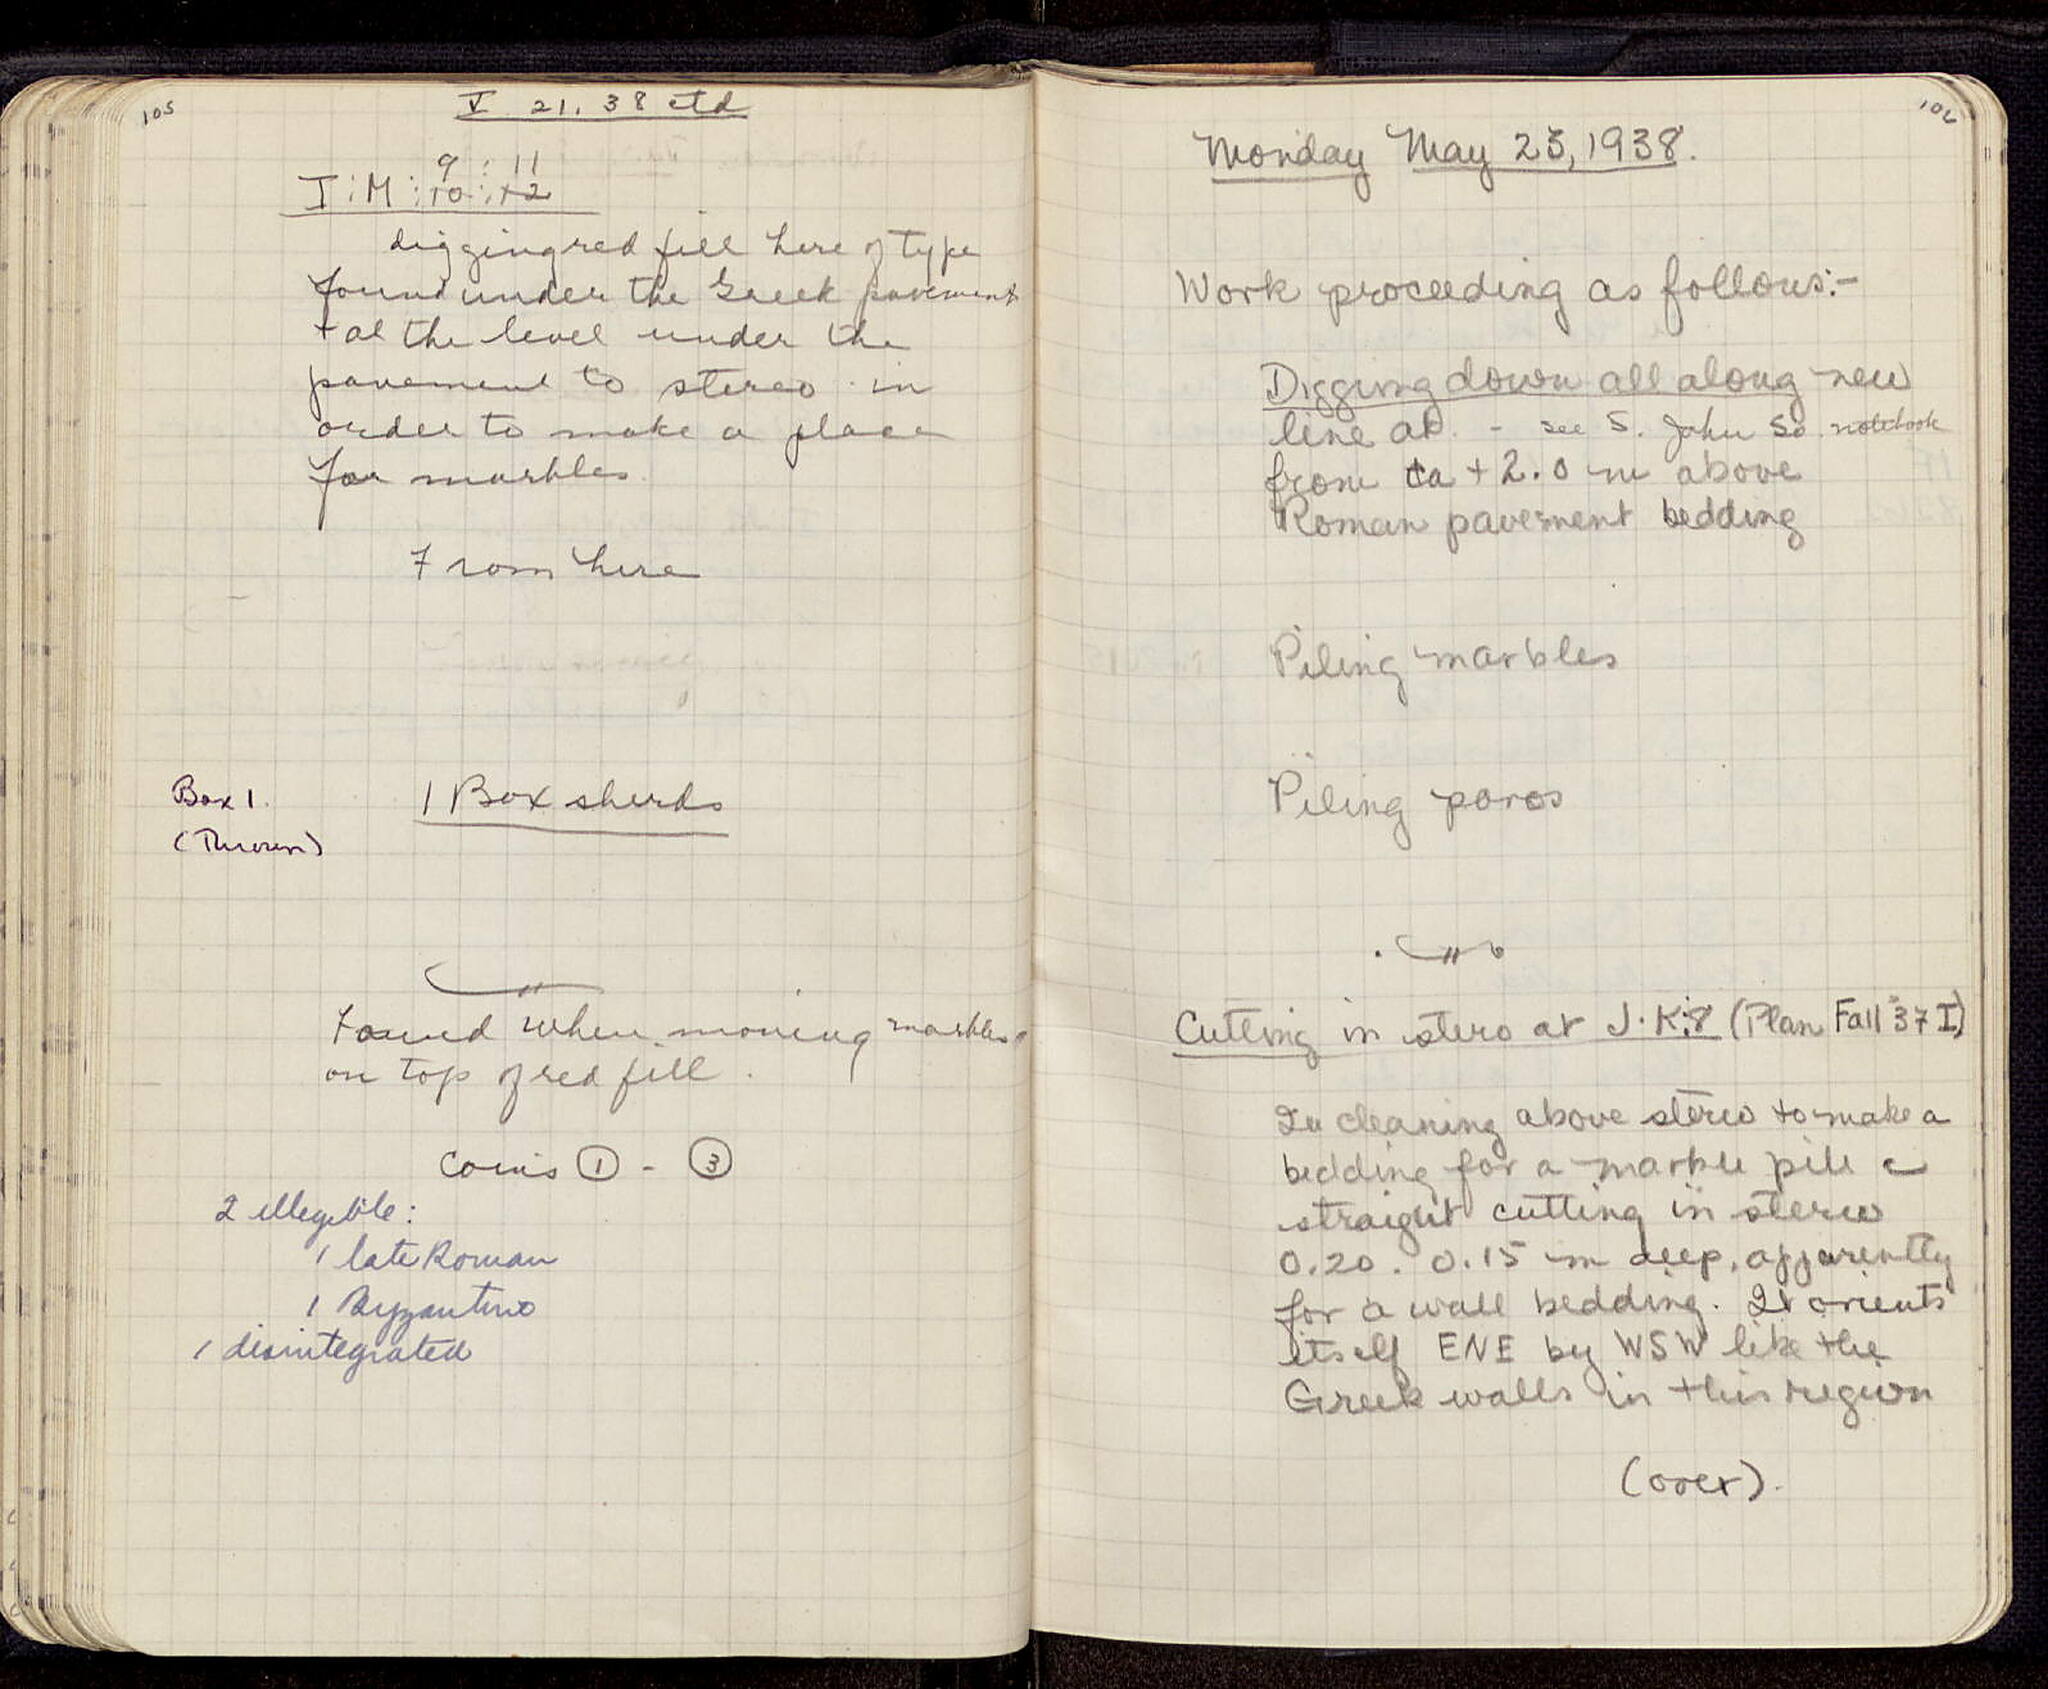 105
V 21. 38 ctd
9 : 11
I : M : 10 : 12
digging red fill here of type
found under the Greek pavement
+ at the level under the
pavement to stereo in
order to make a place
for marbles.
From here
Box 1.
(Thrown)
1 Box sherds
"
Found when moving marbles
on top of red fill.
Coins ① - ③
2 illegible:
1 late Roman
1 Byzantine
1 disintegrated
106
Monday May 23, 1938.
Work proceeding as follows:-
Digging down all along new
line at - see S. John So notebook
from ca + 2.0 m above
Roman pavement bedding
Piling marbles
Piling poros
"
Cutting in stero at J-K:8 (Plan Fall 37 I)
In cleaning above stereo to make a
bedding for a marble pile a
straight cutting in stereo
0.20. 0.15 m deep, apparently
for a wall bedding. It orients
itself ENE by WSW like the
Greek walls in this region
(over).